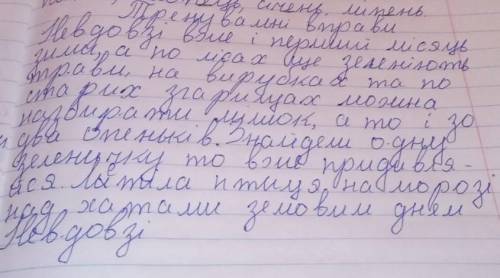 січень, липень.
Тренувамні вправи
Невдовзі вже і перший місяць
зими, а по лісах ще зеленіють
трави, на вирубках та по
старих згарищах можна
назбирати мишок, а то і зо
два опеньків. Знайдеш одну
зеленичку то вже придивля-
йся. Латіла птиця, на морозі
над хатами земовим днем
Невдовзі